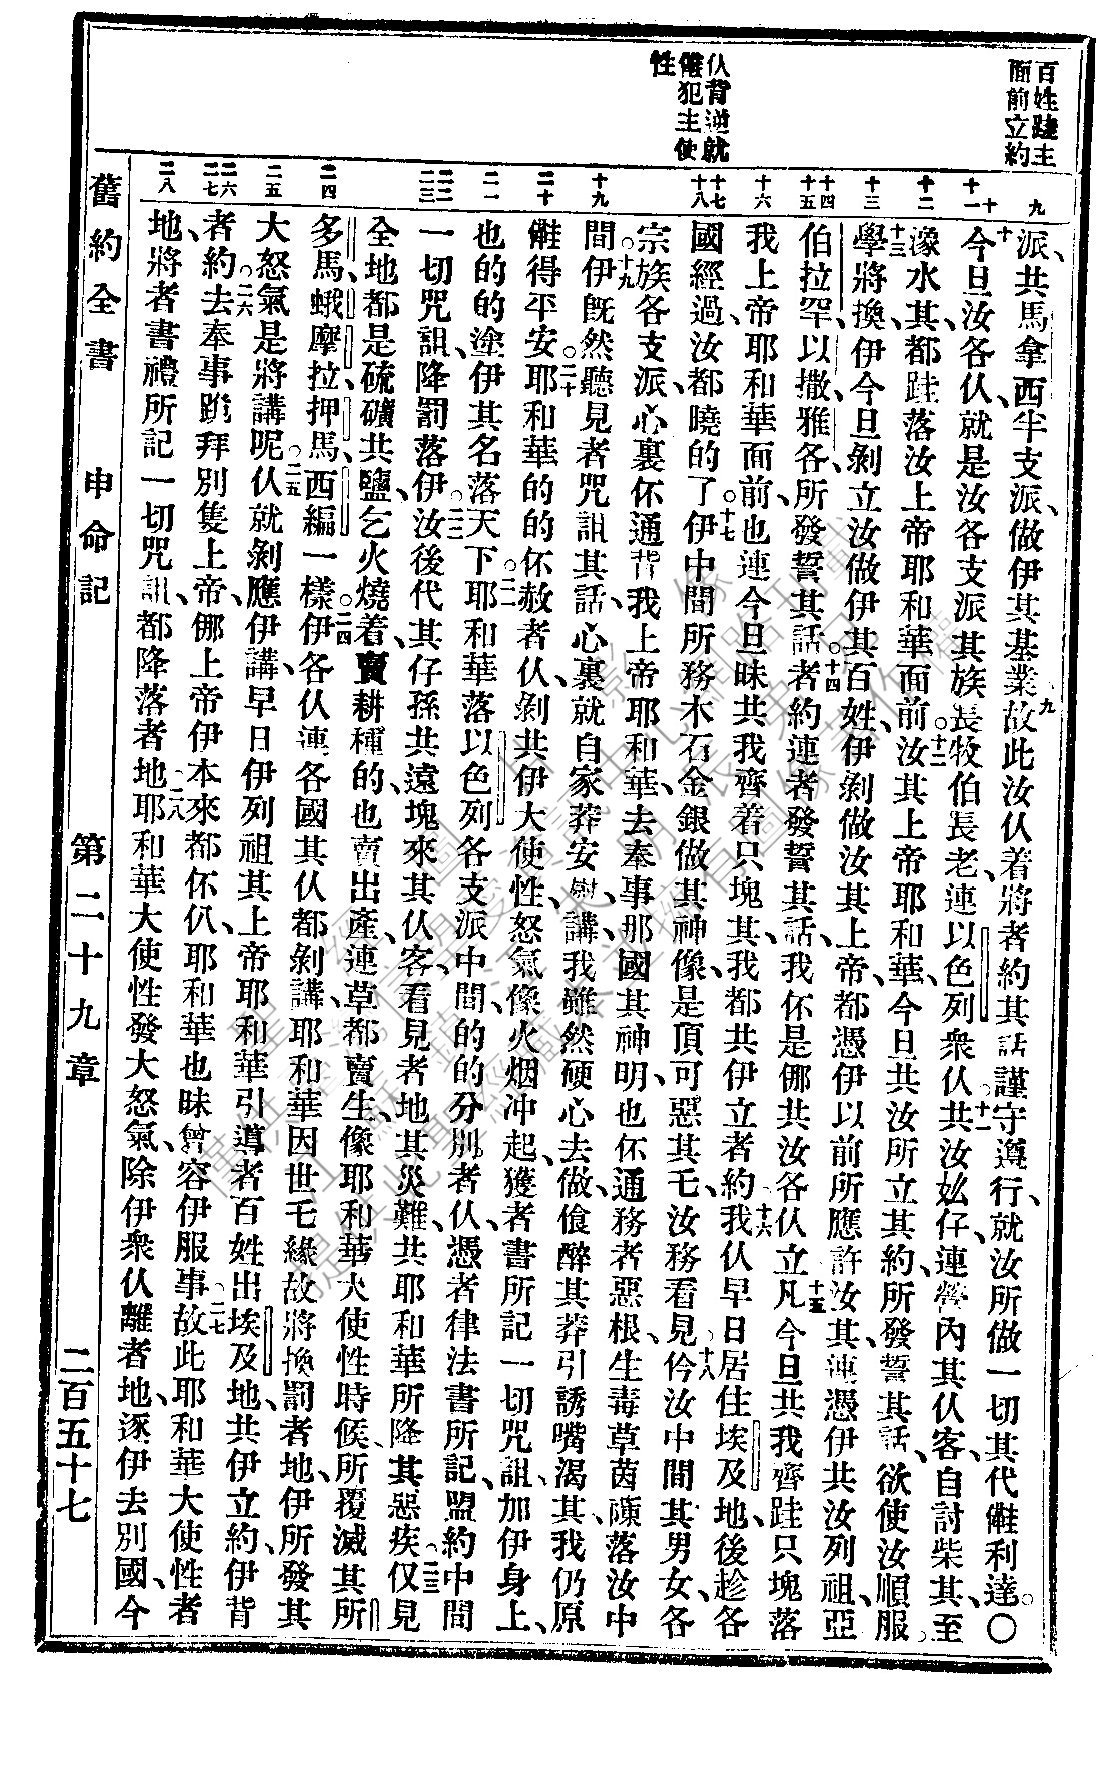 百姓跬主
面前立約
仈背逆就
儺犯主使
性
九
十
十一
十二
十三
十四
十五
十六
十七
十八
十九
二十
二一
二二
二三
二四
二五
二六
二七
二八
派、共馬拿西半支派、做伊其基業、九故此汝仈着將者約其話、謹守遵行、就汝所做一切其代儺利達。○
十今旦汝各仈、就是汝各支派其族長牧伯長老、連以色列衆仈、十一共汝奶仔、連營內其仈客、自討柴其、至
濠水其、都跬落汝上帝耶和華面前。十二汝其上帝耶和華、今日共汝所立其約、所發誓其話、欲使汝順服。
十三學將換、伊今旦剝立汝做伊其百姓、伊剝做汝其上帝、都憑伊以前所應許汝其、連憑伊共汝列祖、亞
伯拉罕、以撒、雅各、所發誓其話。十四者約連者發誓其話、我伓是㑚共汝各仈立、十五凡今旦共我齊跬只塊落
我上帝耶和華面前、也連今旦昧共我齊着只塊其、我都共伊立者約、十六我仈早日居住埃及地、後趁各
國經過、汝都曉的了。十七伊中間所務木石金銀做其神像、是頂可惡其毛、汝務看見、十八伶汝中間其男女、各
宗族各支派、心裏伓通背我上帝耶和華、去奉事那國其神明、也伓通務者惡根、生毒草茵蔯落汝中
間。十九伊旣然聽見者咒詛其話、心裏就自家莽安慰、講、我雖然硬心去做、飡醉其莽引誘嘴渴其、我仍原
儺得平安、二十耶和華的的伓赦者仈、剝共伊大使性、怒氣像火烟冲起、獲者書所記一切咒詛、加伊身上、
也的的塗伊其名落天下。二一耶和華落以色列各支派中間、的的分別者仈、憑者律法書所記、盟約中間
一切咒詛、降罰落伊。二二汝後代其仔孫、共遠塊來其仈客、看見者地其災難、共耶和華所降其惡疾、二三仅見
全地都是硫磺共鹽、乞火燒着、賣耕種的、也賣出產、連草都賣生、像耶和華大使性時候、所覆滅其所
多馬、蛾摩拉、押馬、西編、一樣。二四伊各仈連各國其仈都剝講、耶和華因世乇緣故、將換罰者地、伊所發其
大怒氣、是將講呢。二五仈就剝應伊講、早日伊列祖其上帝耶和華、引導者百姓出埃及地、共伊立約、伊背
者約、二六去奉事跪拜別隻上帝、㑚上帝伊本來都伓仈、耶和華也昧曾容伊服事。二七故此耶和華大使性者
地、將者書禮所記一切咒詛、都降落者地、二八耶和華大使性、發大怒氣、除伊衆仈離者地、逐伊去別國、今
舊約全書　申命記　第二十九章　二百五十七